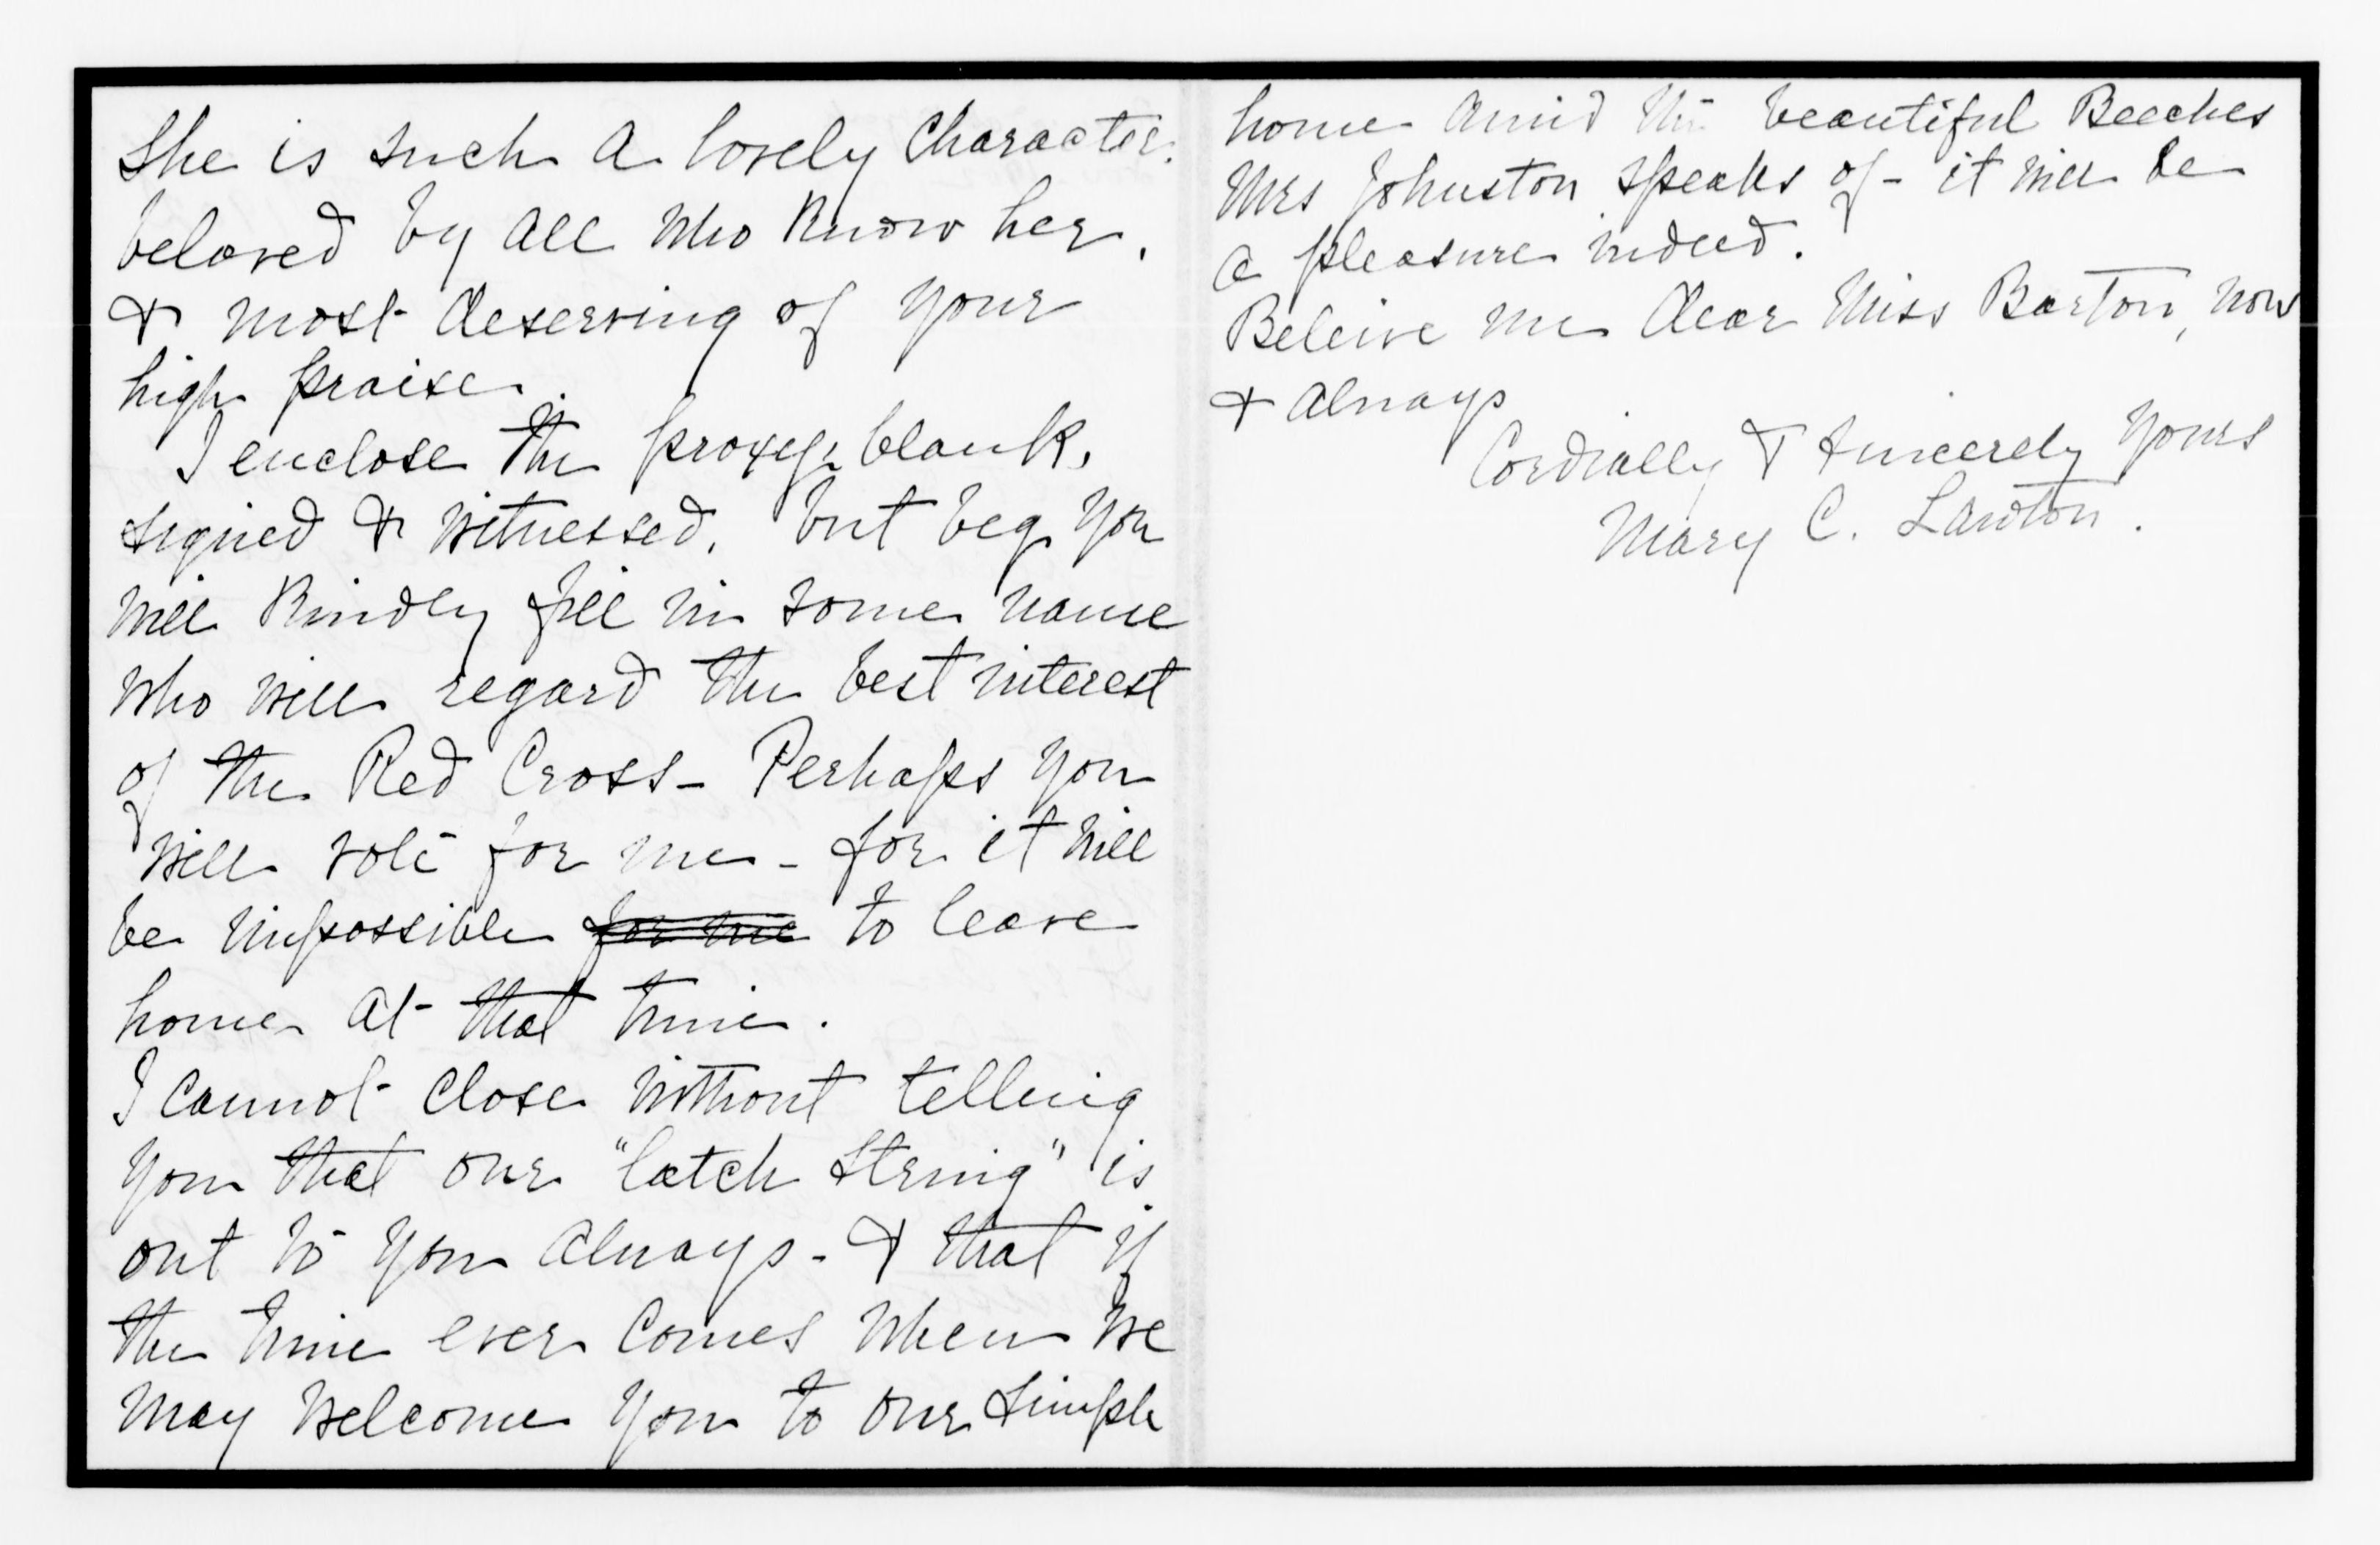 She is such a lovely Character.
beloved by all who know her,
& most deserving of your
high praise.
I enclose the proxy blank,
signed & witnessed, but beg you
will kindly fill in some name
who will regard the best interest
of the Red Cross - Perhaps you
will vote for me - for it will
be impossible for me to leave
home at that time.
I cannot close without telling
you that our "latch string" is
out to you always - & that if
the time ever comes when we
may welcome you to our simple
home amid the beautiful Beeches
Mrs Johnston speaks of - it will be
a pleasure indeed.
Beleive me dear Miss Barton, now
& always
Cordially & sincerely yours
Mary C. Lawton.